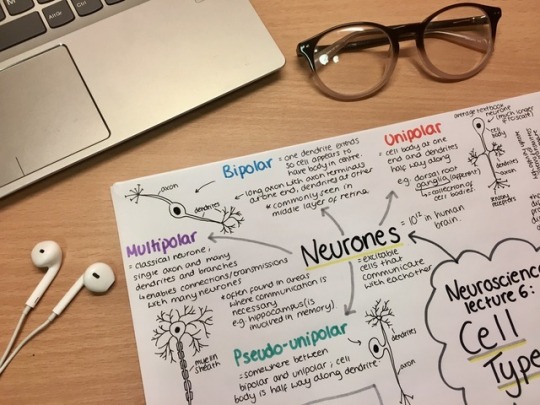 Alt Gr
Ctrl
Bipolar
= one dendrite extends
so cell appears to
have body in centre.
long axon with axon terminals
at one end, dendrites at other
*commonly seen in
middle layer of retina.
axon
dendrites
Unipolar
= cell body at one
end and dendrites
half way along
e.g. dorsal root
ganglia (afferent)
↳ collection of
cell bodies.
average textbook
neurone
(much longer
axon
dendrites
Multipolar
= classical neurone,
single axon and many
dendrites and branches
↳ enables connections/transmissions
with many neurones
*often found in areas
where communication is
necessary
e.g. hippocampus (is
involved in memory).
myelin
sheath
Neurones
= 10¹² in human
brain.
= excitable
cells that
communicate
with eachother
Pseudo-unipolar
= somewhere between
bipolar and unipolar; cell
body is half way along dendrite.
dendrites
axon
Neuroscience
lecture 6:
Cell
Type